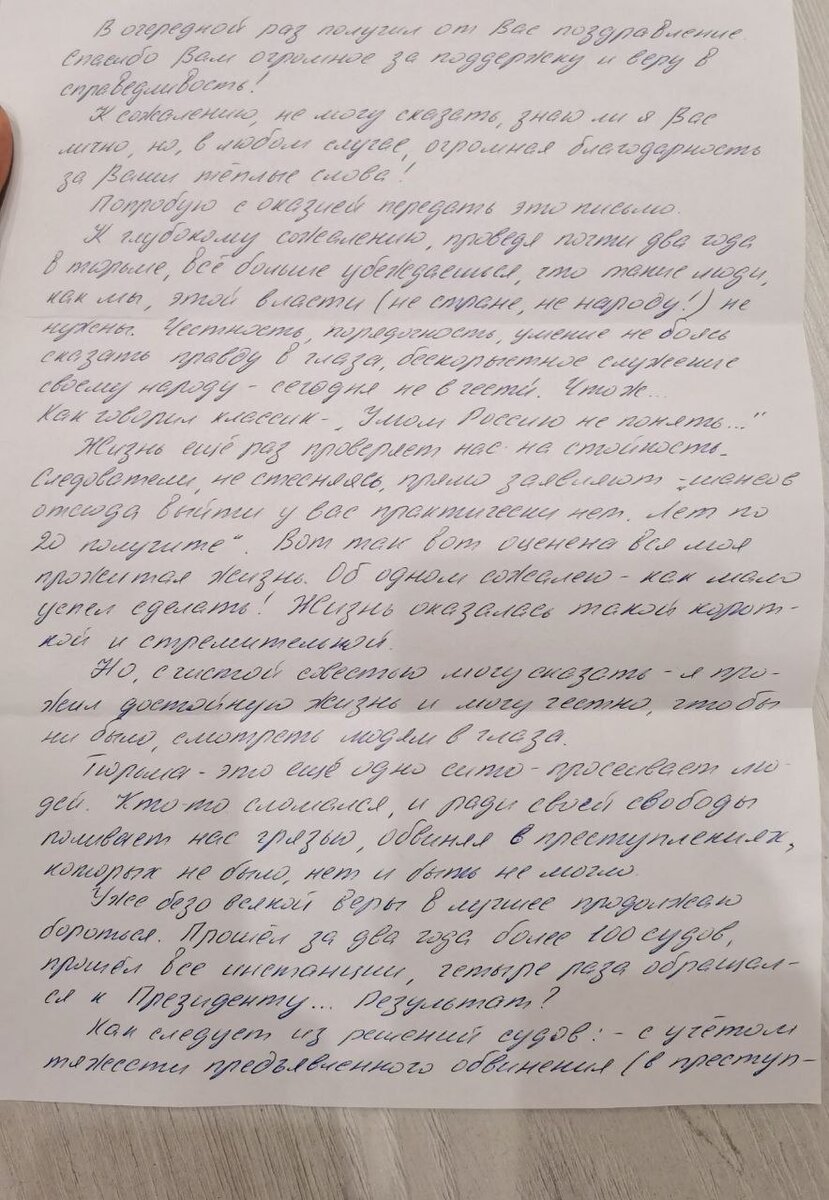 В очередной раз получил от Вас поздравление.
Спасибо Вам огромное за поддержку и веру в
справедливость!
К сожалению, не могу сказать, знаю ли я Вас
лично, но, в любом случае, огромная благодарность
за Ваши тёплые слова!
Попробую с оказией передать это письмо.
К глубокому сожалению, проведя почти два года
в тюрьме, всё больше убеждаешься, что такие люди,
как мы, этой власти (не стране, не народу!) не
нужны. Честность, порядочность, умение не боясь
сказать правду в глаза, бескорыстное служение
своему народу - сегодня не в чести. Что ж...
Как говорил классик - „Умом Россию не понять..."
Жизнь ещё раз проверяет нас на стойкость.
Следователи, не стесняясь, прямо заявляют - „шансов
отсюда выйти у вас практически нет. Лет по
20 получите". Вот так вот оценена вся моя
прожитая жизнь. Об одном сожалею - как мало
успел сделать! Жизнь оказалась такой корот-
кой и стремительной.
Но, с чистой совестью могу сказать - я про-
жил достойную жизнь и могу честно, что бы
ни было, смотреть людям в глаза.
Тюрьма - это ещё одно сито - просеивает лю-
дей. Кто-то сломался, и ради своей свободы
поливает нас грязью, обвиняя в преступлениях,
которых не было, нет и быть не могло.
Уже безо всякой веры в лучшее продолжаю
бороться. Прошёл за два года более 100 судов,
прошёл все инстанции, четыре раза обращал-
ся к Президенту... Результат?
Как следует из решений судов: - с учётом
тяжести предъявленного обвинения (в преступ-